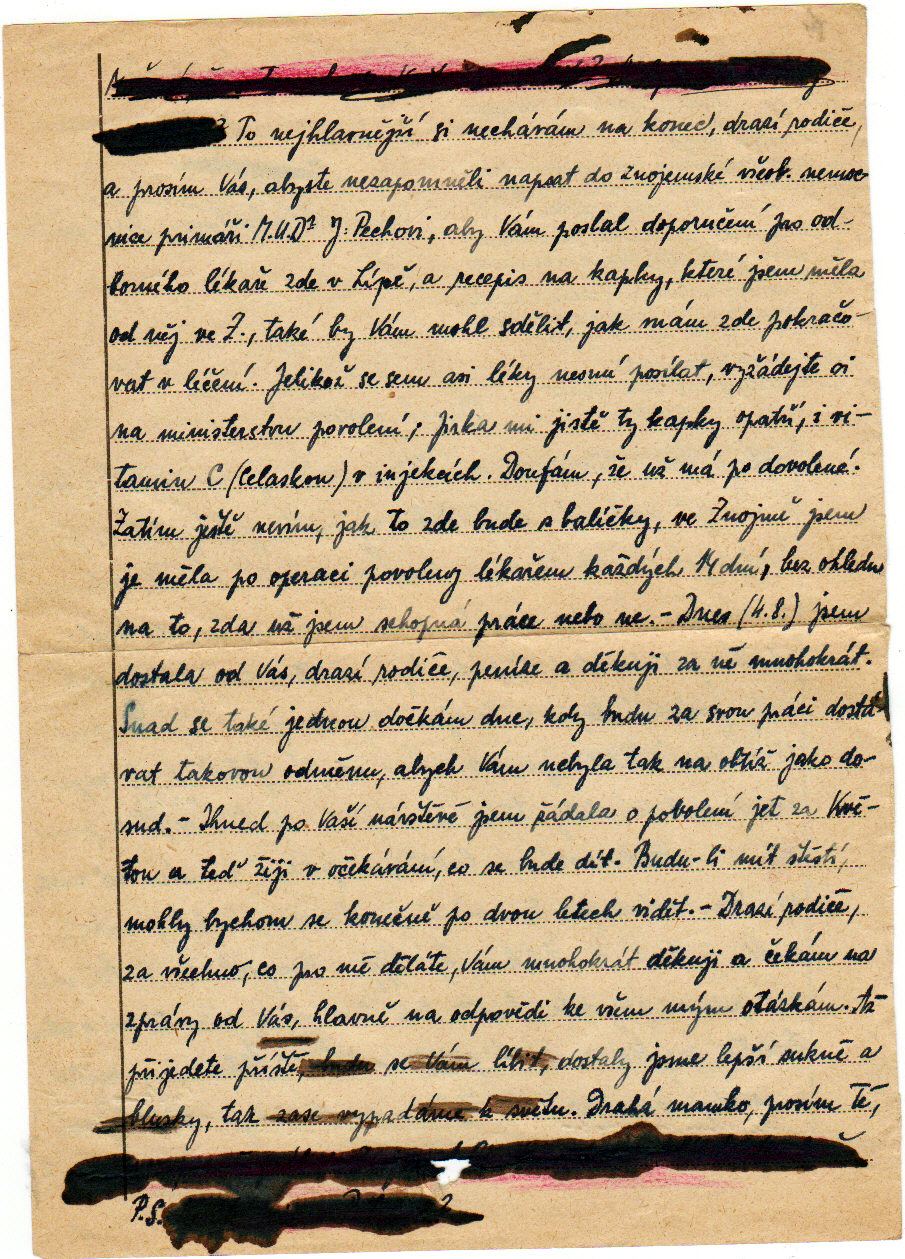 To nejhlavnější si nechávám na konec, drazí rodiče,
a prosím Vás, abyste nezapomněli napsat do znojemské všeob. nemoc-
nice primáři M.U.Dr J. Pechovi, aby Vám poslal doporučení pro od-
borného lékaře zde v Lípě, a recepis na kapky, které jsem měla
od něj ve Z., také by Vám mohl sdělit, jak mám zde pokračo-
vat v léčení. Jelikož se sem asi léky nesmí posílat, vyžádejte si
na ministerstvu povolení, Jirka mi jistě ty kapky opatří, i vi-
tamin C (Celaskon) v injekcích. Doufám, že už má po dovolené.
Zatím ještě nevím, jak to zde bude s balíčky, ve Znojmě jsem
je měla po operaci povoleny lékařem každých 14 dní, bez ohledu
na to, zda už jsem schopná práce nebo ne. - Dnes (4.8.) jsem
dostala od Vás, drazí rodiče, peníze a děkuji za ně mnohokrát.
Snad se také jednou dočkám dne, kdy budu za svou práci dostá-
vat takovou odměnu, abych Vám nebyla tak na obtíž jako do-
sud. - Ihned po Vaší návštěvě jsem žádala o povolení jet za Kvě-
tou a teď žiji v očekávání, co se bude dít. Budu-li mít štěstí,
mohly bychom se konečně po dvou letech vidět. - Drazí rodiče,
za všechno, co pro mě děláte, Vám mnohokrát děkuji a čekám na
zprávy od Vás, hlavně na odpovědi ke všem mým otázkám. Až
přijedete příště, budu se Vám líbit, dostaly jsme lepší sukně a
blusky, tak zase vypadáme k světu. Drahá mamko, prosím Tě,
P.S.